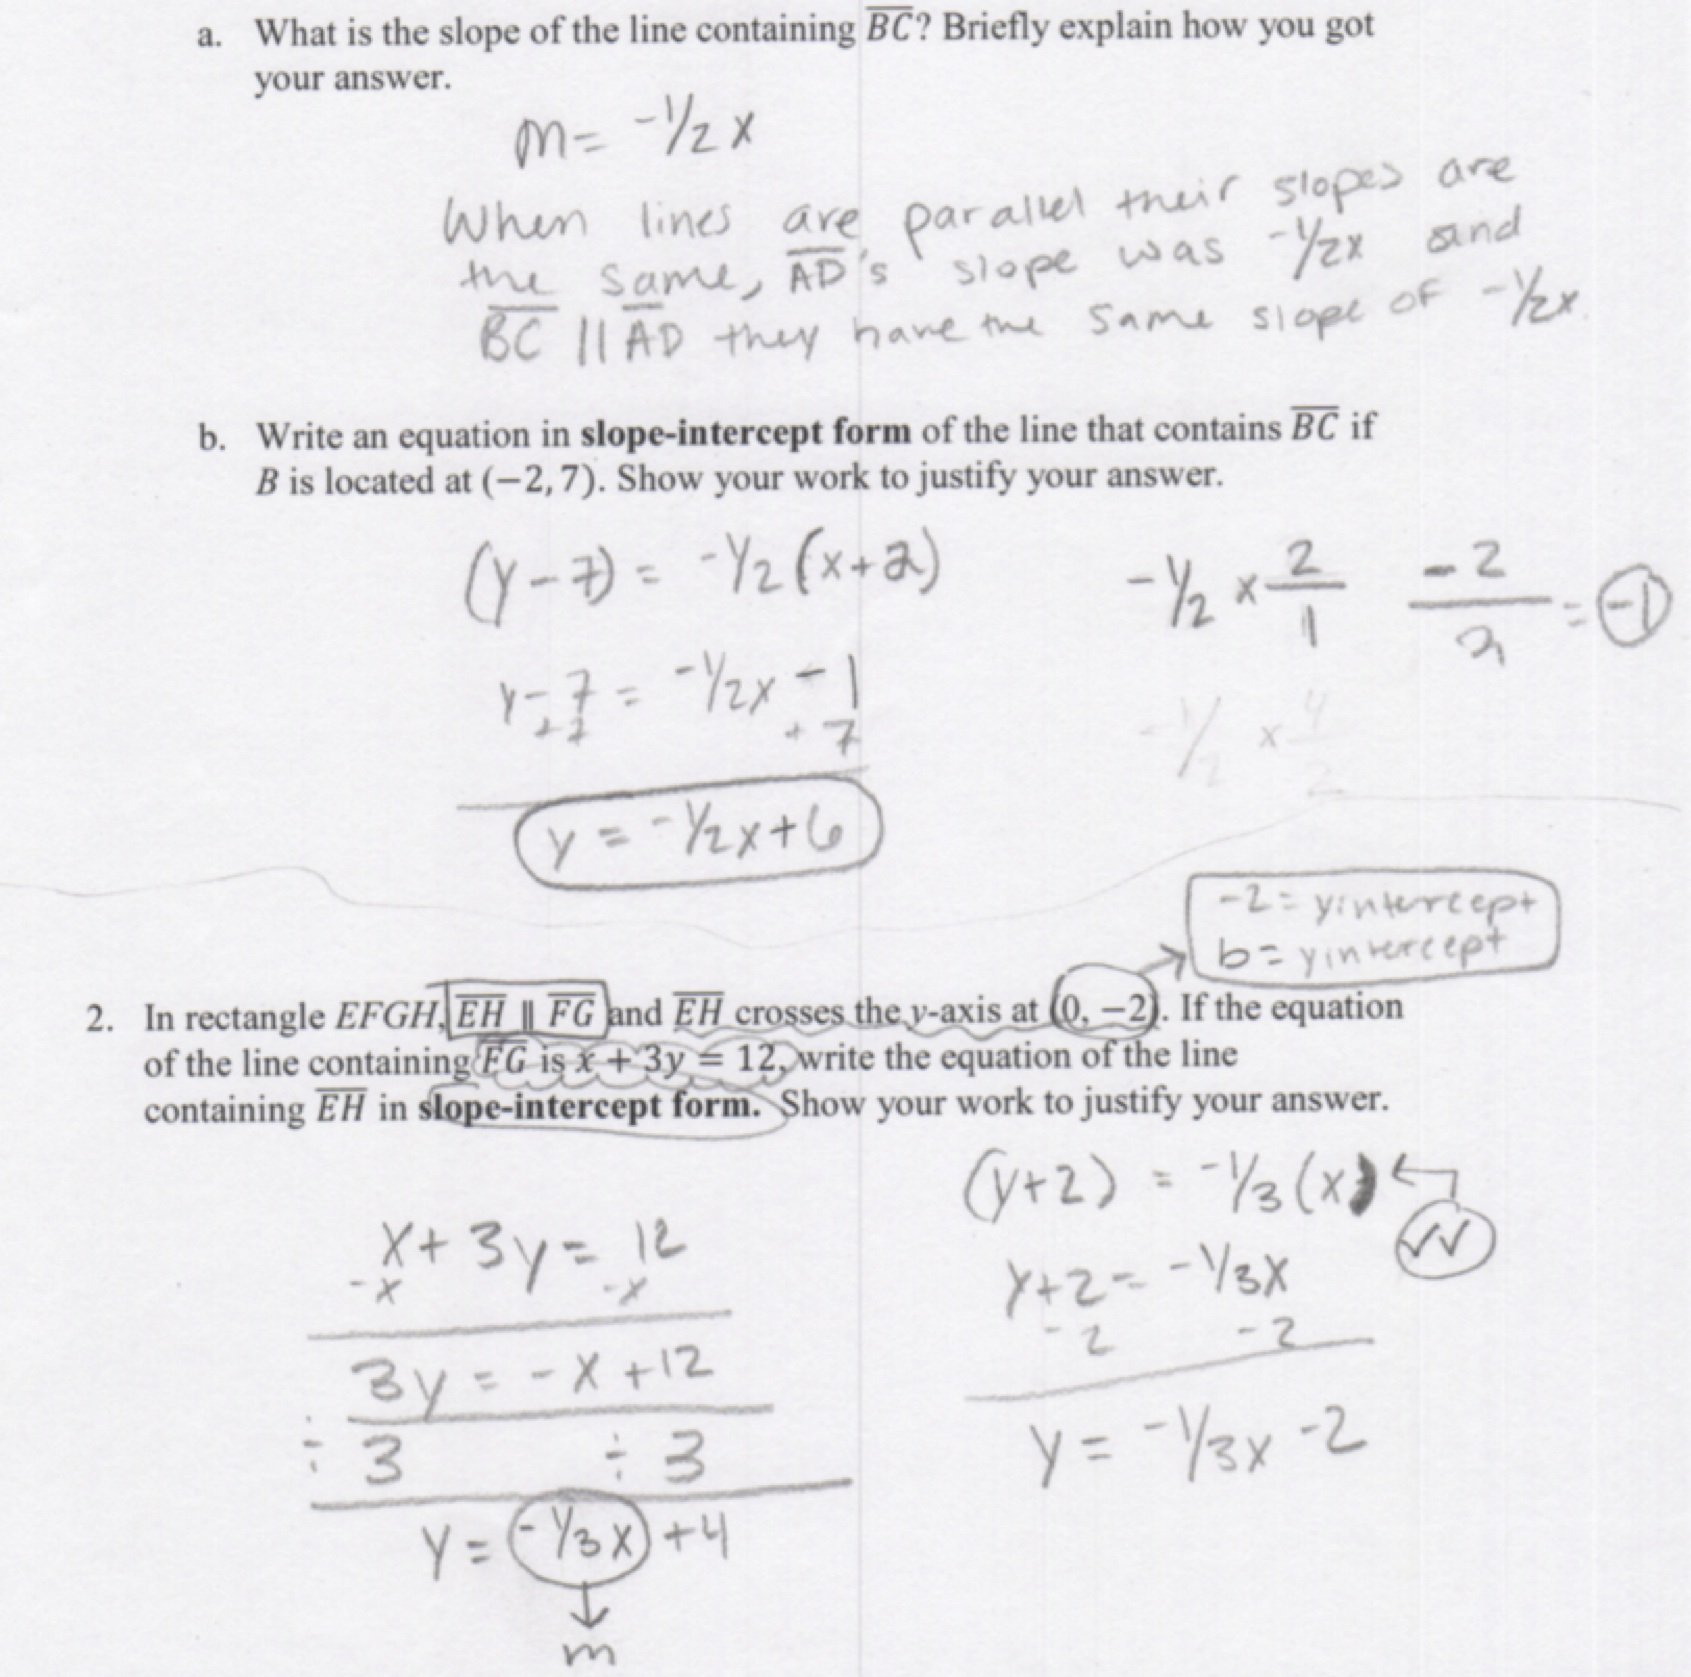 a. What is the slope of the line containing BC? Briefly explain how you got
your answer.
m = -1/2 x
When lines are parallel their slopes are
the same, AD's slope was -1/2x and
BC || AD they have the same slope of -1/2x.
b. Write an equation in slope-intercept form of the line that contains BC if
B is located at (−2, 7). Show your work to justify your answer.
(y - 7) = -1/2 (x+2)
y - 7 = -1/2x - 1
+7 +7
y = -1/2x + 6
-1/2 x 2/1 -2/2 = -1
-1/2 x 4/2
-2 = y intercept
b = y intercept
2. In rectangle EFGH, EH ∥ FG and EH crosses the y-axis at (0, −2). If the equation
of the line containing FG is x + 3y = 12, write the equation of the line
containing EH in slope-intercept form. Show your work to justify your answer.
x + 3y = 12
-x -x
3y = -x + 12
÷ 3 ÷ 3
y = -1/3x + 4
m
(y+2) = -1/3 (x)
✓✓
y+2 = -1/3x
-2 -2
y = -1/3x -2